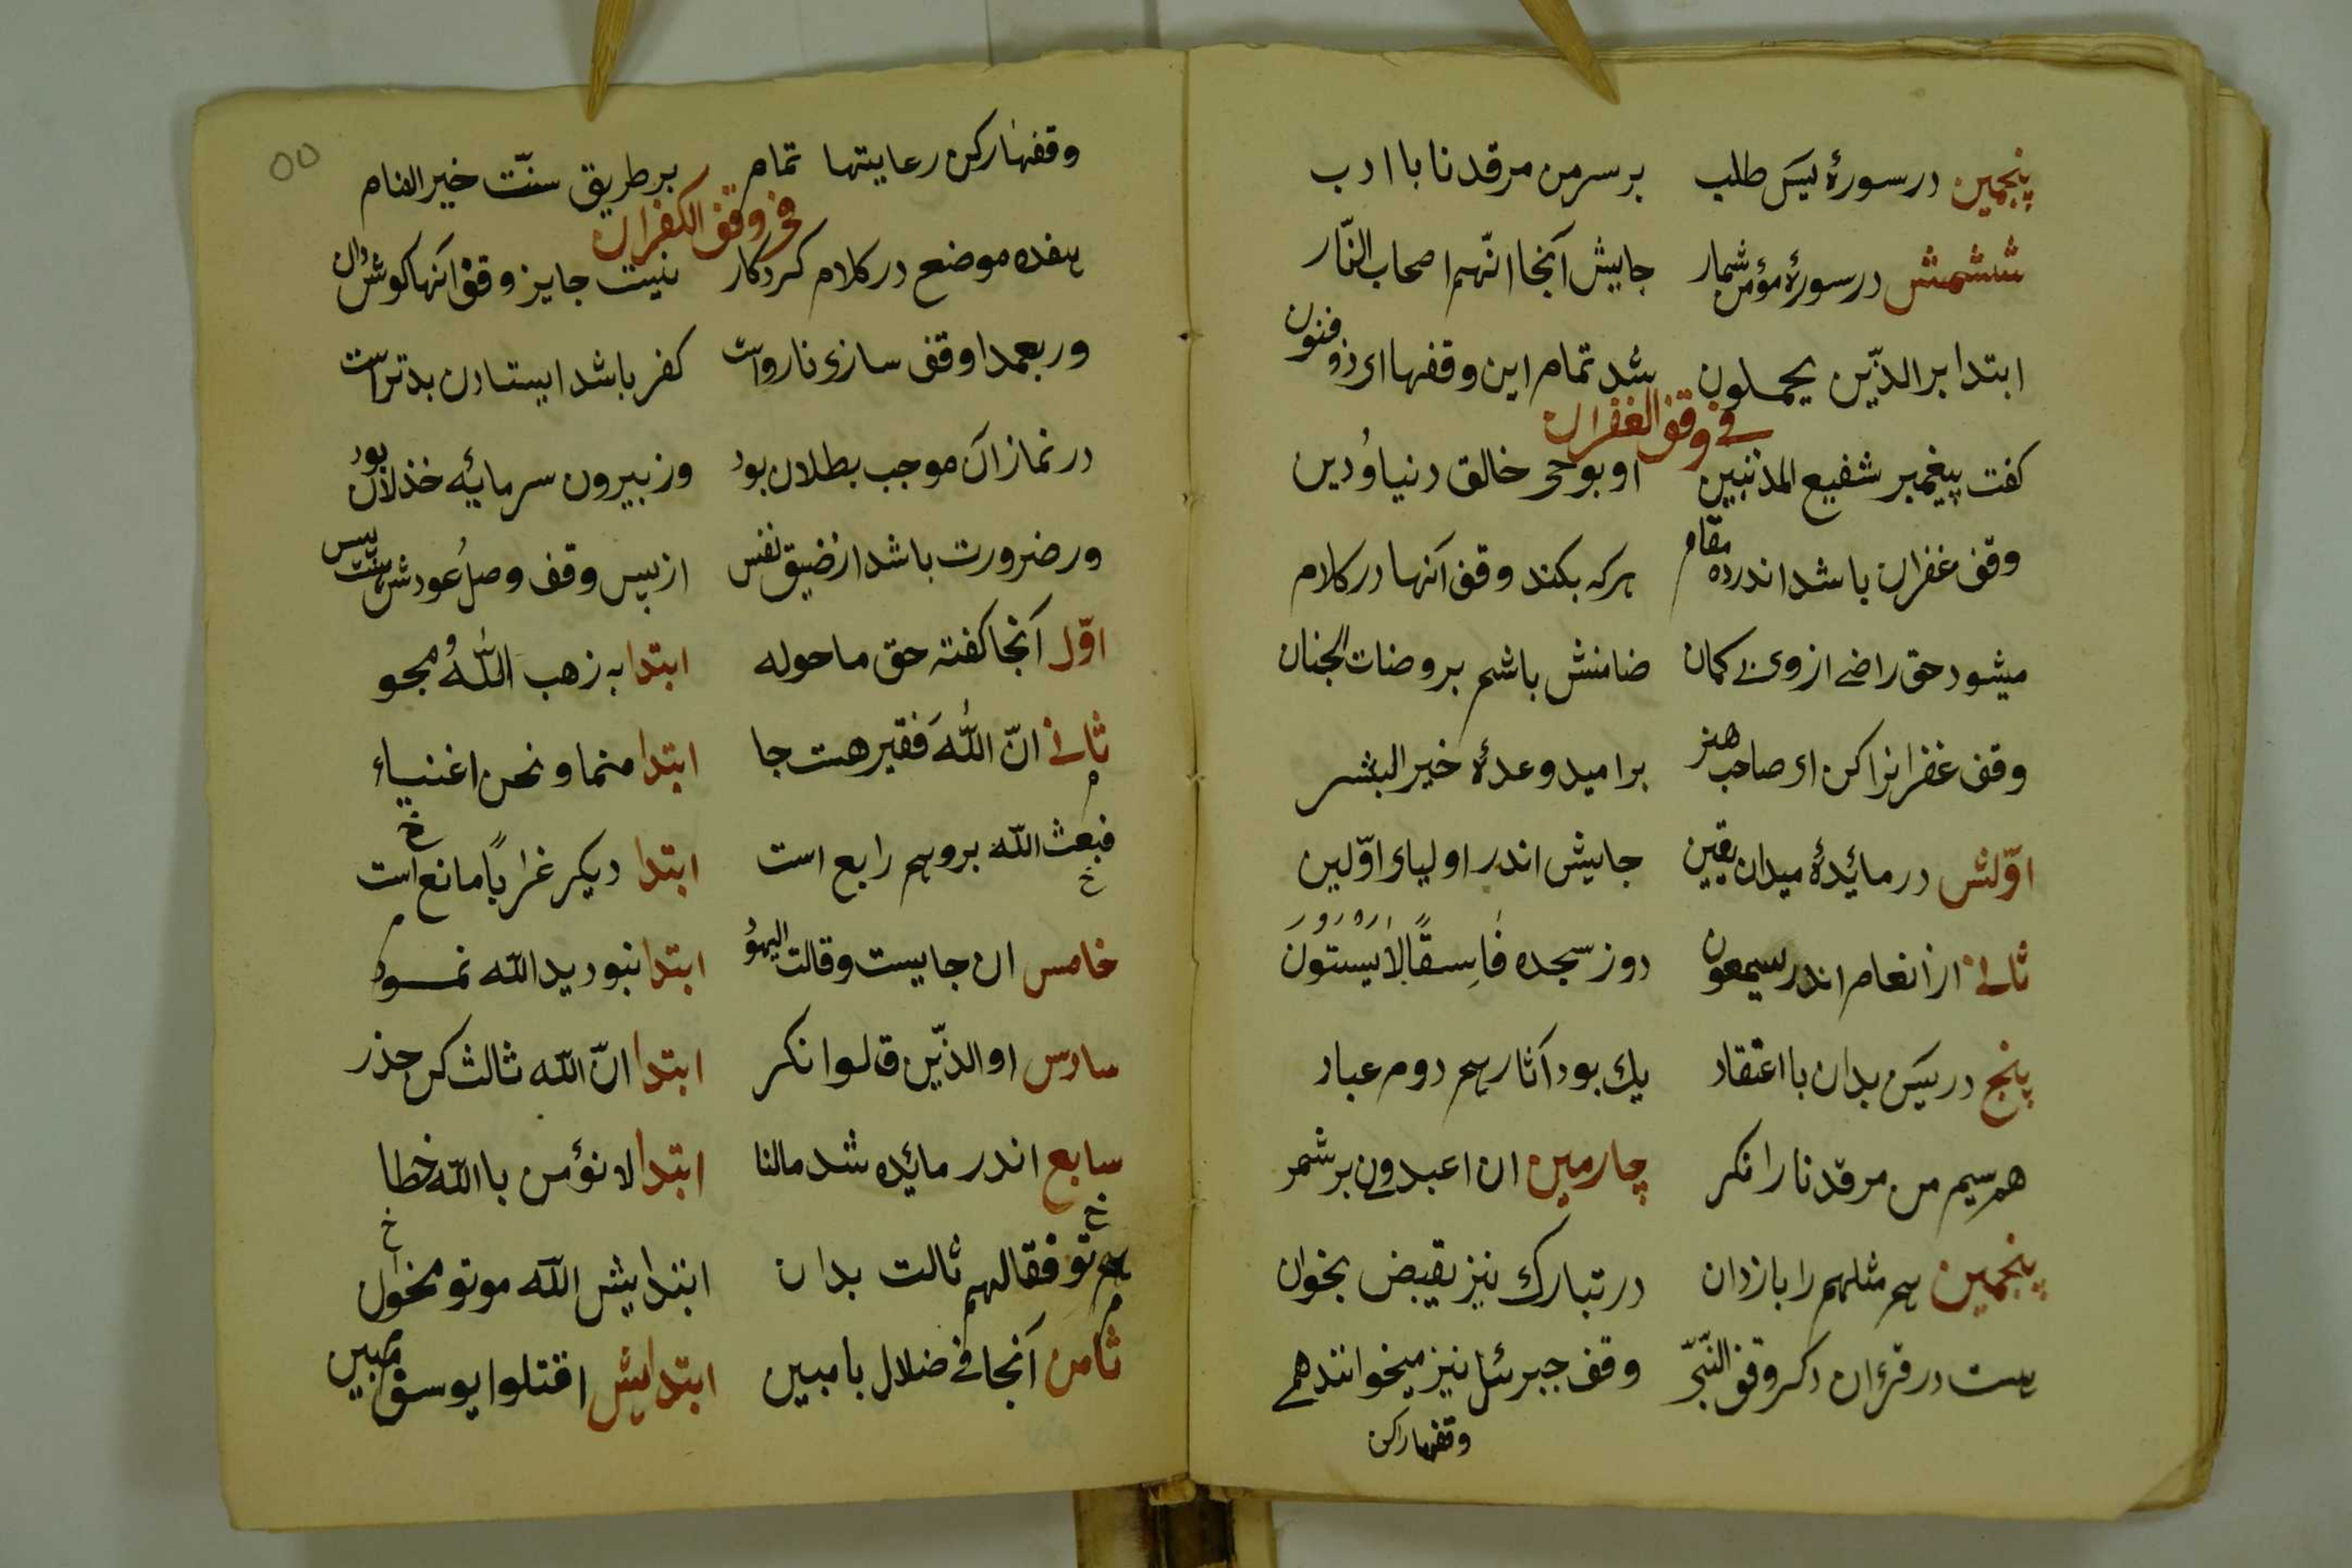 پنجمین در سورهٔ یس طلب بر سر من مرقدنا با ادب
ششمش در سورهٔ مؤمن شمار جایش آنجا انّهم اصحاب النّار
ابتدا بر الذّین یحملون شد تمام این وقفها ای ذو فنون
فی وقف الغفران
کفت پیغمبر شفیع المذنبین او بوحی خالق دنیا و دین
وقف غفران باشد اندر ده مقام هرکه بکند وقف آنها در کلام
میشود حق راضی از وی بی کمان ضامنش باشم بروضات الجنان
وقف غفرانرا کن ای صاحب هنر بر امید وعدهٔ خیر البشر
اوّلش در مائیدهٔ میدان یقین جایش اندر اولیای اوّلین
ثانی از انعام اندر یسمعون دو ز سجده فَاسِقًا لاَیَسْتَوُنَ
پنج در یس بدان با اعتقاد یك بود آثارهم دوم عباد
هم سیم من مرقدنا را نکر چارمین ان اعبدونی بر شمر
پنجمین هم مثلهم را باز دان در تبارك نیز یقبض بخوان
هست در قرءان دکر وقف النّبی وقف جبرئیل نیز میخوانند همی
وقفهارا کن
٥٥
وقفهارا کن رعایتها تمام بر طریق سنّت خیر الانام
فی وقف الکفران
هفده موضع در کلام کردکار نیست جایز وقف آنها کوش دار
ور بعمدا وقف سازی نارواست کفر باشد ایستادن بدتر است
در نماز آن موجب بطلان بود وز بیرون سرمایئه خذلان بود
ور ضرورت باشد از ضیق نفس از پس وقف وصل عودش
اوّل آنجا کفته حق ما حوله ابتدا به ذهب اللّهُ مجو
ثانی انّ اللّهَ فقیر هست جا ابتدا منما و نحن اغنیاء
م
فبعث اللّه برو هم رابع است ابتدا دیکر غرابًا مانع است
خ خ
خامس ان جاییست و قالت الیهود ابتدا نبود ید اللّه نمود
م
سادس او الذّین قالوا نکر ابتدا انّ اللّه ثالث کن حذر
سابع اندر مائیده شد مالنا ابتدا لا نؤمن با اللّه خطا
خ خ
هم تو فقالهم ثالث بدان ابتدایش اللّه موتو مخوان
م
ثامن آنجا فی ضلال با مبین ابتدایش اقتلوا یوسف مبین